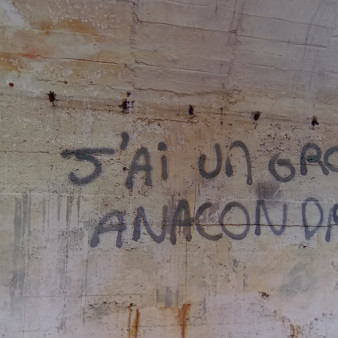 J'Ai UN GRO
ANACONDA